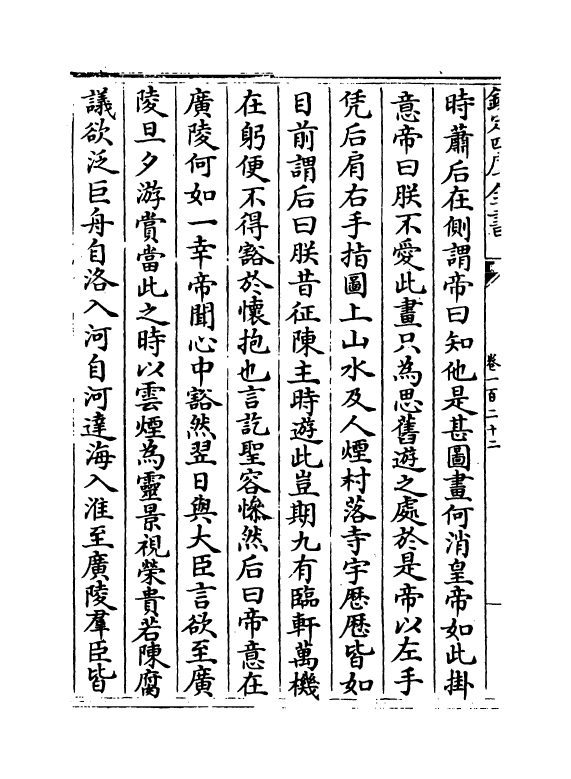 欽定四庫全書
卷一百二十二
時蕭后在側謂帝曰知他是甚圖畫何消皇帝如此掛
意帝曰朕不愛此畫只為思舊遊之處於是帝以左手
凭后肩右手指圖上山水及人煙村落寺宇歷歷皆如
目前謂后曰朕昔征陳主時遊此豈期九有臨軒萬機
在躬便不得豁於懷抱也言訖聖容慘然后曰帝意在
廣陵何如一幸帝聞心中豁然翌日與大臣言欲至廣
陵旦夕游賞當此之時以雲煙為靈景視榮貴若陳腐
議欲泛巨舟自洛入河自河達海入淮至廣陵羣臣皆